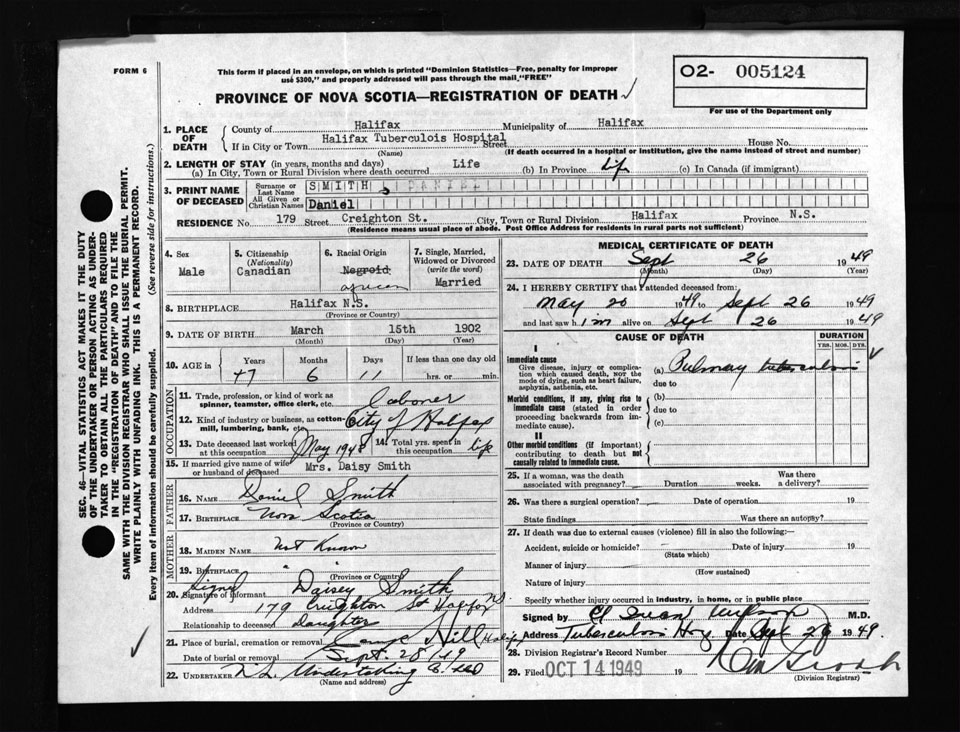 FORM 6
This form if placed in an envelope, on which is printed "Dominion Statistics—Free, penalty for improper
use $300," and properly addressed will pass through the mail "FREE"
PROVINCE OF NOVA SCOTIA—REGISTRATION OF DEATH
O2- 005124
For use of the Department only
SEC. 46—VITAL STATISTICS ACT MAKES IT THE DUTY
OF THE UNDERTAKER OR PERSON ACTING AS UNDER-
TAKER TO OBTAIN ALL THE PARTICULARS REQUIRED
IN THE "REGISTRATION OF DEATH" AND TO FILE THE
SAME WITH THE DIVISION REGISTRAR WHO SHALL ISSUE THE BURIAL PERMIT.
WRITE PLAINLY WITH UNFADING INK. THIS IS A PERMANENT RECORD.
Every item of information should be carefully supplied. (See reverse side for instructions.)
1. PLACE OF DEATH
County of Halifax Municipality of Halifax
If in City or Town Halifax Tuberculois Hospital Street House No.
(Name) (If death occurred in a hospital or institution, give the name instead of street and number)
2. LENGTH OF STAY (in years, months and days)
(a) In City, Town or Rural Division where death occurred Life (b) In Province Life (c) In Canada (if immigrant)
3. PRINT NAME OF DECEASED
Surname or Last Name SMITH, DANIEL
All Given or Christian Names Daniel
RESIDENCE No. 179 Street Creighton St. City, Town or Rural Division Halifax Province N.S.
(Residence means usual place of abode. Post Office Address for residents in rural parts not sufficient)
4. Sex Male
5. Citizenship (Nationality) Canadian
6. Racial Origin Negroid African
7. Single, Married, Widowed or Divorced (write the word) Married
8. BIRTHPLACE Halifax N.S.
(Province or Country)
9. DATE OF BIRTH March 15th 1902
(Month) (Day) (Year)
10. AGE in Years Months Days If less than one day old
47 6 11 hrs. or min.
OCCUPATION
11. Trade, profession, or kind of work as spinner, teamster, office clerk, etc. Laborer
12. Kind of industry or business, as cotton-mill, lumbering, bank, etc. City of Halifax
13. Date deceased last worked at this occupation May 1948 14. Total yrs. spent in this occupation life
15. If married give name of wife or husband of deceased Mrs. Daisy Smith
FATHER
16. NAME Daniel Smith
17. BIRTHPLACE Nova Scotia
(Province or Country)
MOTHER
18. MAIDEN NAME Not Known
19. BIRTHPLACE " "
(Province or Country)
20. Signature of informant Signed Daisey Smith
Address 179 Creighton St Halifax N.S.
Relationship to deceased daughter
21. Place of burial, cremation or removal Camp Hill Halifax
Date of burial or removal Sept. 28/49
22. UNDERTAKER N.S. Undertaking Co. Ltd
(Name and address)
MEDICAL CERTIFICATE OF DEATH
23. DATE OF DEATH Sept 26 1949
(Month) (Day) (Year)
24. I HEREBY CERTIFY that I attended deceased from:
May 20 1949 to Sept 26 1949
and last saw him alive on Sept 26 1949
CAUSE OF DEATH DURATION
YRS. MOS. DYS.
I
Immediate cause
Give disease, injury or complication which caused death, NOT the mode of dying, such as heart failure, asphyxia, asthenia, etc.
(a) Pulmonary tuberculosis
due to
Morbid conditions, if any, giving rise to immediate cause (stated in order proceeding backwards from immediate cause).
(b)
due to
(c)
II
Other morbid conditions (if important) contributing to death but not causally related to immediate cause.
25. If a woman, was the death associated with pregnancy? Duration weeks. Was there a delivery?
26. Was there a surgical operation? Date of operation 19
State findings Was there an autopsy?
27. If death was due to external causes (violence) fill in also the following:—
Accident, suicide or homicide? Date of injury 19
(State which)
Manner of injury
(How sustained)
Nature of injury
Specify whether injury occurred in industry, in home, or in public place
Signed by M.D.
Address Tuberculosis Hosp Date Sept 26 1949.
28. Division Registrar's Record Number
29. Filed OCT 14 1949 19
(Division Registrar)